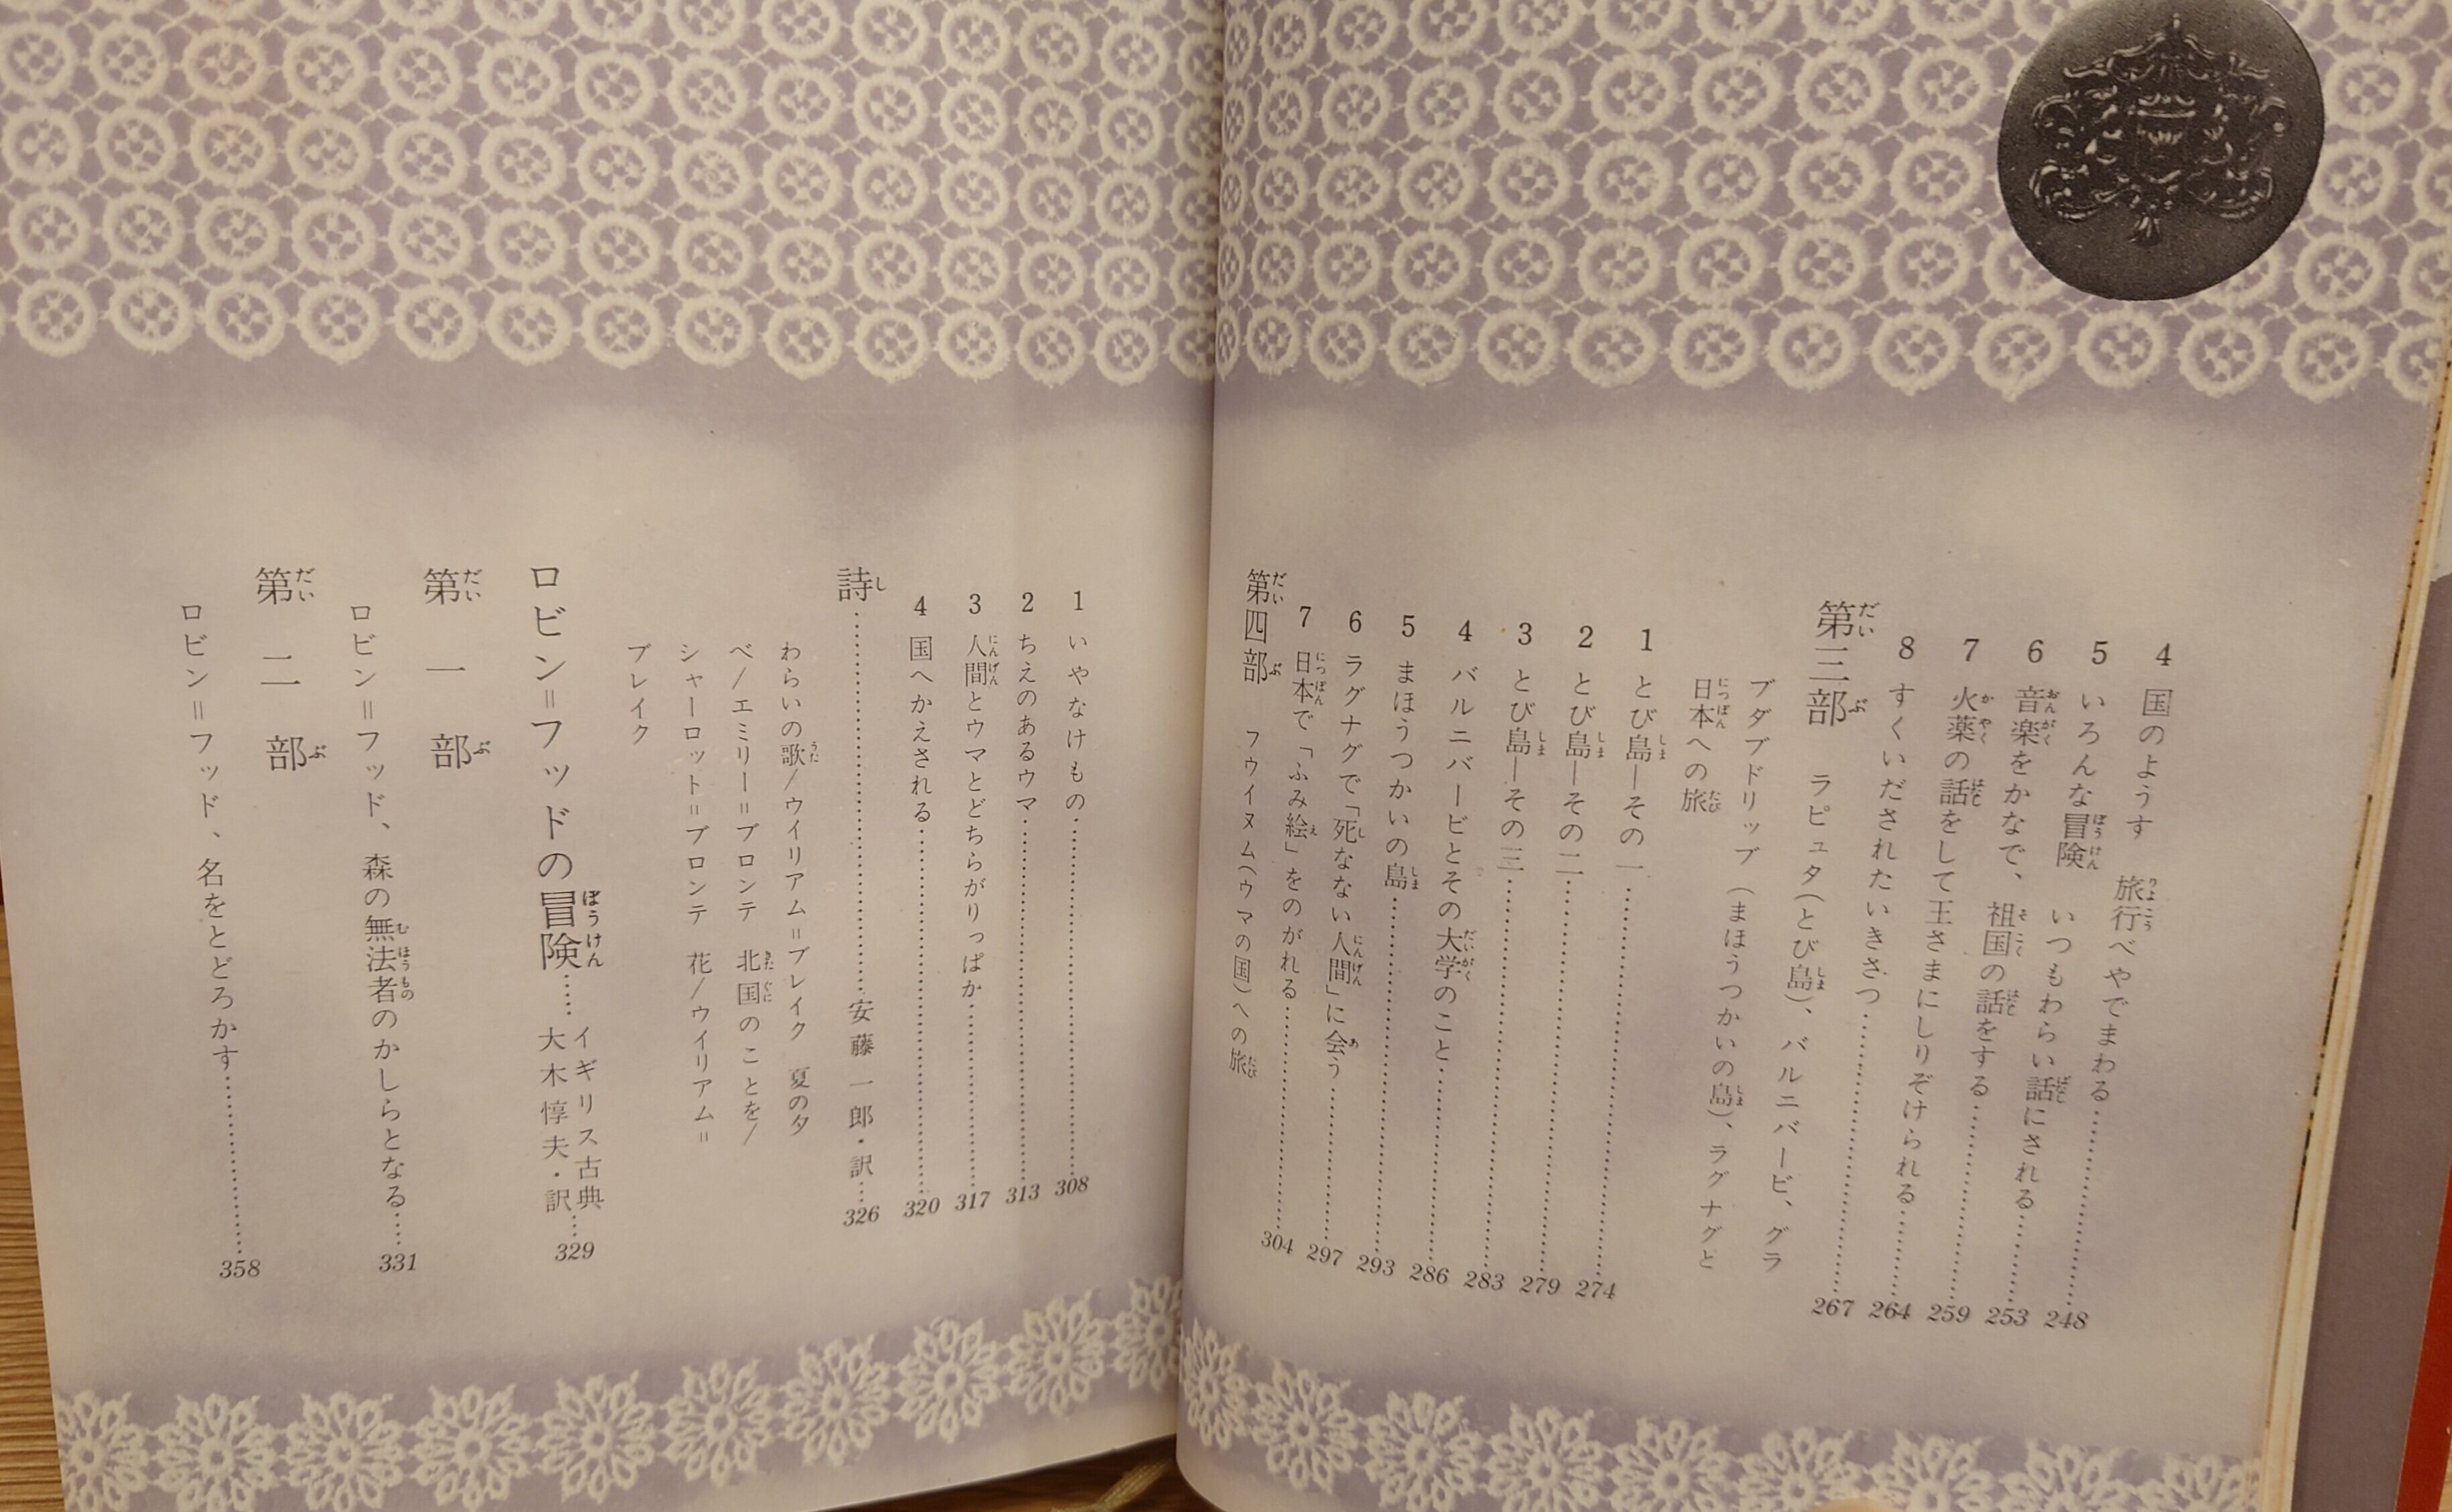 4 国のようす 旅行べやでまわる……248
5 いろんな冒険 いつもわらい話にされる……253
6 音楽をかなで、祖国の話をする……259
7 火薬の話をして王さまにしりぞけられる……264
8 すくいだされたいきさつ……267
第三部 ラピュタ(とび島)、バルニバービ、グラ
ブダブドリッブ(まほうつかいの島)、ラグナグと
日本への旅
1 とび島―その一……274
2 とび島―その二……279
3 とび島―その三……283
4 バルニバービとその大学のこと……286
5 まほうつかいの島……293
6 ラグナグで「死なない人間」に会う……297
7 日本で「ふみ絵」をのがれる……304
第四部 フウイヌム(ウマの国)への旅
1 いやなけもの……308
2 ちえのあるウマ……313
3 人間とウマとどちらがりっぱか……317
4 国へかえされる……320
詩……安藤一郎・訳……326
わらいの歌/ウイリアム=ブレイク 夏の夕
べ/エミリー=ブロンテ 北国のことを/
シャーロット=ブロンテ 花/ウイリアム=
ブレイク
ロビン=フッドの冒険……イギリス古典 大木惇夫・訳……329
第一部
ロビン=フッド、森の無法者のかしらとなる……331
第二部
ロビン=フッド、名をとどろかす……358